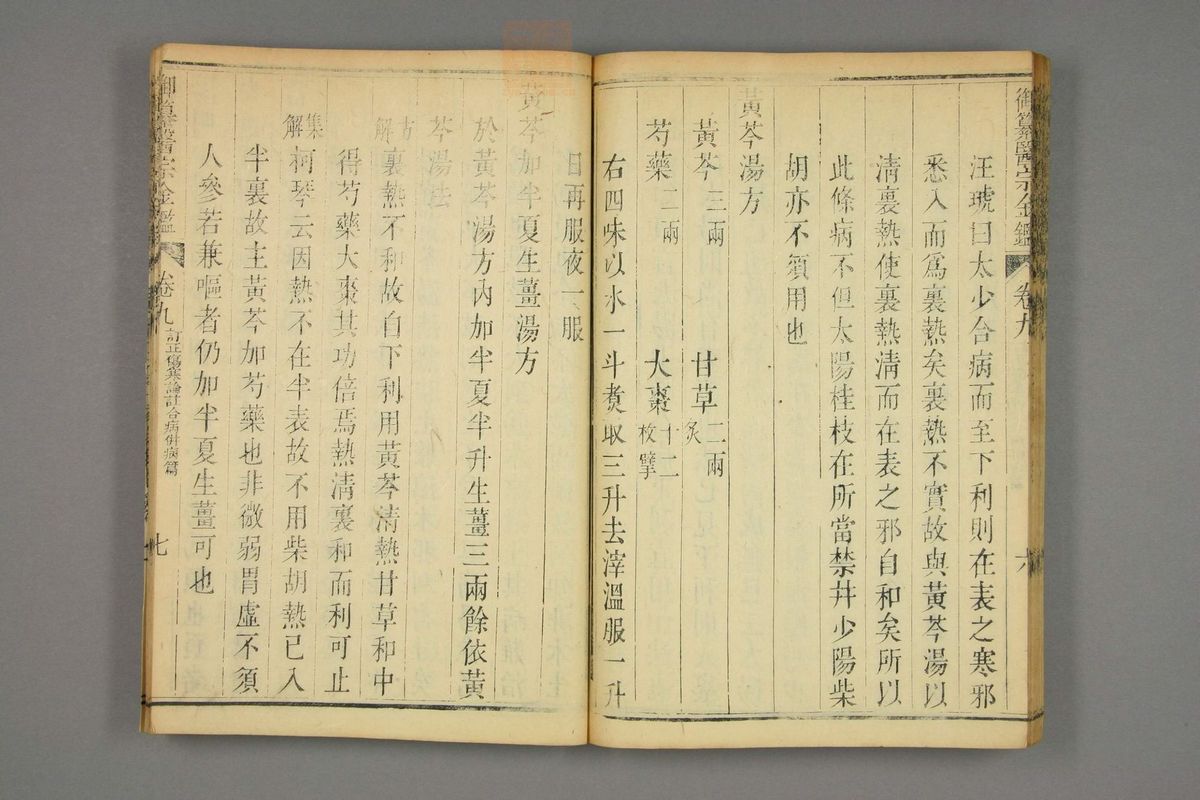 御纂醫宗金鑑 卷九 六
汪琥曰太少合病而至下利則在表之寒邪
悉入而爲裏熱矣裏熱不實故與黃芩湯以
淸裏熱使裏熱淸而在表之邪自和矣所以
此條病不但太陽桂枝在所當禁幷少陽柴
胡亦不須用也
黃芩湯方
黃芩三兩 甘草二兩炙
芍藥二兩 大棗十二枚擘
右四味以水一斗煑取三升去滓溫服一升
日再服夜一服
黃芩加半夏生薑湯方
於黃芩湯方內加半夏半升生薑三兩餘依黃
芩湯法
解 裏熱不和故自下利用黃芩淸熱甘草和中
得芍藥大棗其功倍焉熱淸裏和而利可止
集解 柯琴云因熱不在半表故不用柴胡熱已入
半裏故主黃芩加芍藥也非微弱胃虛不須
人參若兼嘔者仍加半夏生薑可也
御纂醫宗金鑑 卷九 訂正傷寒論註合病併病篇 七